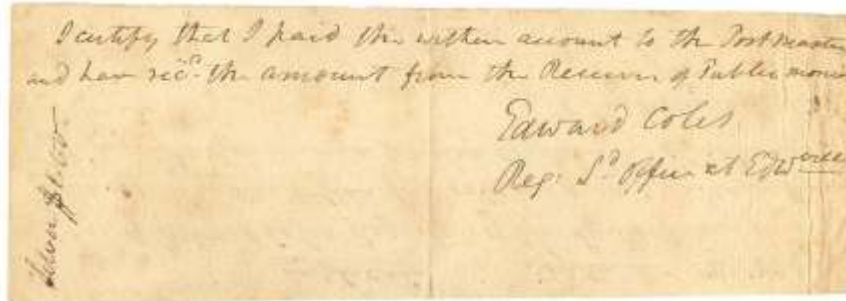 I certify that I paid the within account to the Postmaster
and have recd. the amount from the Receiver of Public monies
Edward Coles
Reg: Ld. Office at Edwville